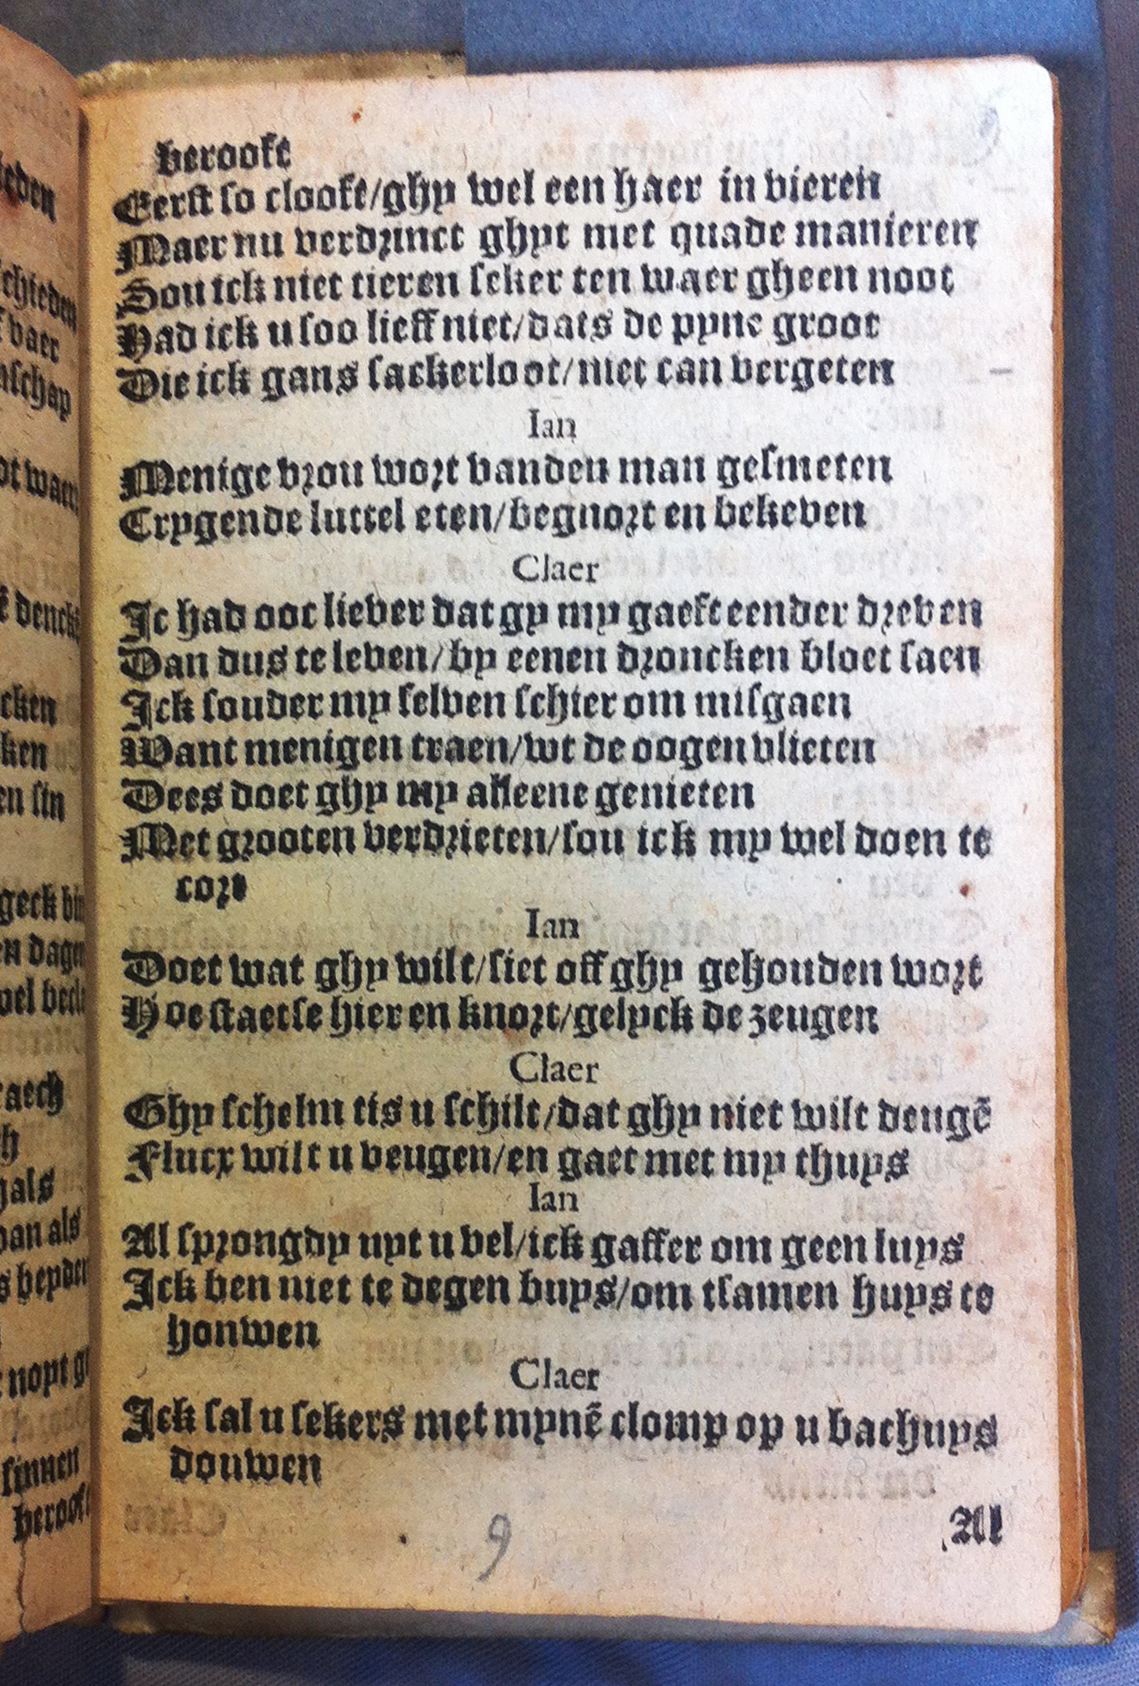 berooft
Eerst so clooft/ghy wel een haer in vieren
Maer nu verdrinct ghyt met quade manieren
Sou ick niet tieren seker ten waer gheen noot
Had ick u soo lieff niet/dats de pyne groot
Die ick gans sackerloot/niet can vergeten
Ian
Menige vrou wort vanden man gesmeten
Crygende luttel eten/begnort en bekeven
Claer
Ic had oot liever dat gy my gaeft eender dreven
Dan dus te leven/by eenen droncken bloet saen
Ick souder my selven schier om misgaen
Want menigen traen/wt de oogen vlieten
Dees doet ghy my alleene genieten
Met grooten verdrieten/sou ick my wel doen te
cort
Ian
Doet wat ghy wilt/siet off ghy gehouden wort
Hoe staetse hier en knort/gelyck de zeugen
Claer
Ghy schelm tis u schilt/dat ghy niet wilt deugē
Flucx wilt u veugen/en gaet met my thuys
Ian
Al sprongdy uyt u vel/ick gaffer om geen luys
Ick ben niet te degen buys/om tsamen huys te
honwen
Claer
Ick sal u sekers met mynē clomp op u bachuys
douwen
Al
9